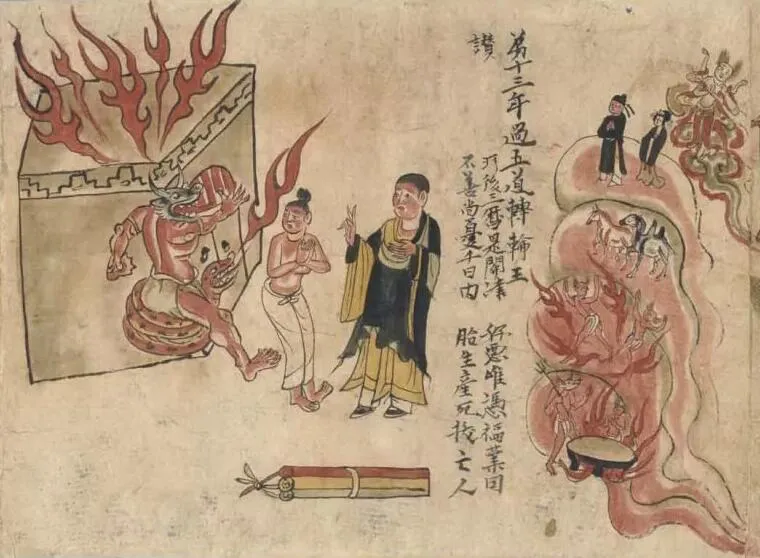 第十三年過五道轉輪王
讚
所後三曆是關津 好惡唯憑福業因
不善尚憂千日內 胎生產死拔亡人